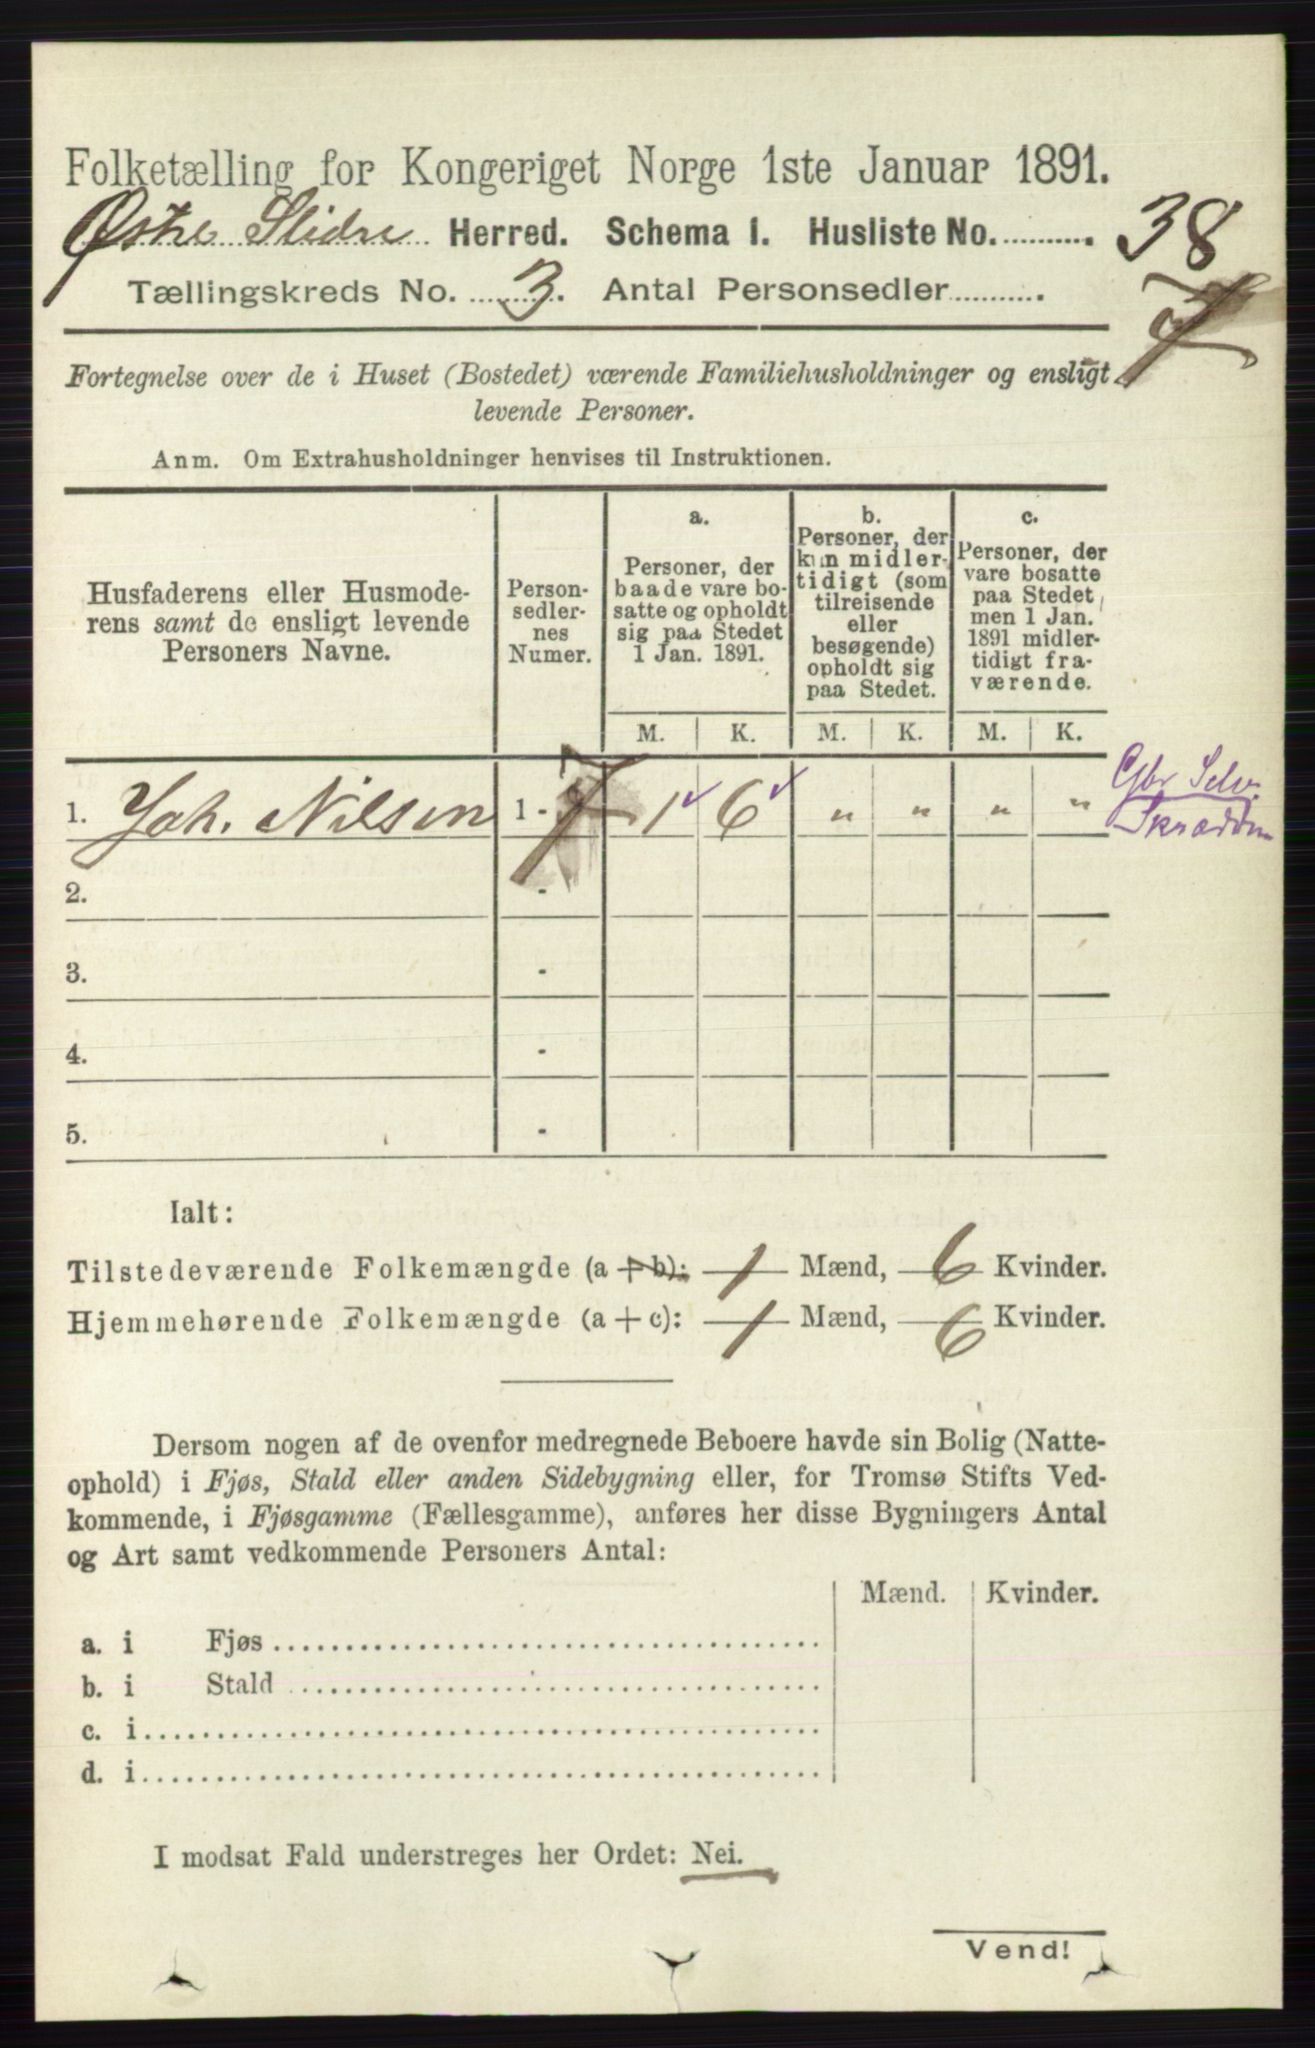 Folketælling for Kongeriget Norge 1ste Januar 1891.
Østre Slidre Herred. Schema I. Husliste No. 38
Tællingskreds No. 3. Antal Personsedler 7
Fortegnelse over de i Huset (Bostedet) værende Familiehusholdninger og ensligt
levende Personer.
Anm. Om Extrahusholdninger henvises til Instruktionen.
Husfaderens eller Husmode-
rens samt de ensligt levende
Personers Navne.
Person-
sedler-
nes
Numer.
a.
Personer, der
baade vare bo-
satte og opholdt
sig paa Stedet
1 Jan. 1891.
b.
Personer, der
kun midler-
tidigt (som
tilreisende
eller
besøgende)
opholdt sig
paa Stedet.
c.
Personer, der
vare bosatte
paa Stedet,
men 1 Jan.
1891 midler-
tidigt fra-
værende.
M. K. M. K. M. K.
1. Joh. Nilsen 1 - 7 1 6 " " " " Gbr Selv.
Skrædder
2. -
3. -
4. -
5. -
Ialt:
Tilstedeværende Folkemængde (a + b): 1 Mænd, 6 Kvinder.
Hjemmehørende Folkemængde (a + c): 1 Mænd, 6 Kvinder.
Dersom nogen af de ovenfor medregnede Beboere havde sin Bolig (Natte-
ophold) i Fjøs, Stald eller anden Sidebygning eller, for Tromsø Stifts Ved-
kommende, i Fjøsgamme (Fællesgamme), anføres her disse Bygningers Antal
og Art samt vedkommende Personers Antal:
Mænd. Kvinder.
a. i Fjøs
b. i Stald
c. i
d. i
I modsat Fald understreges her Ordet: Nei.
Vend!